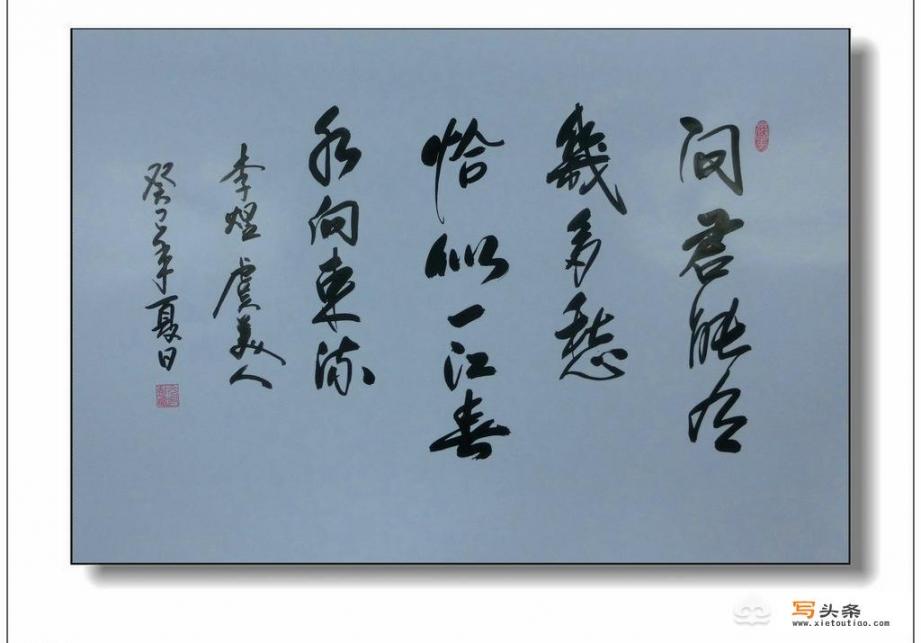 问君能有
幾多愁
恰似一江春
水向東流
李煜 虞美人
癸巳年夏日
写头条
www.xietoutiao.com